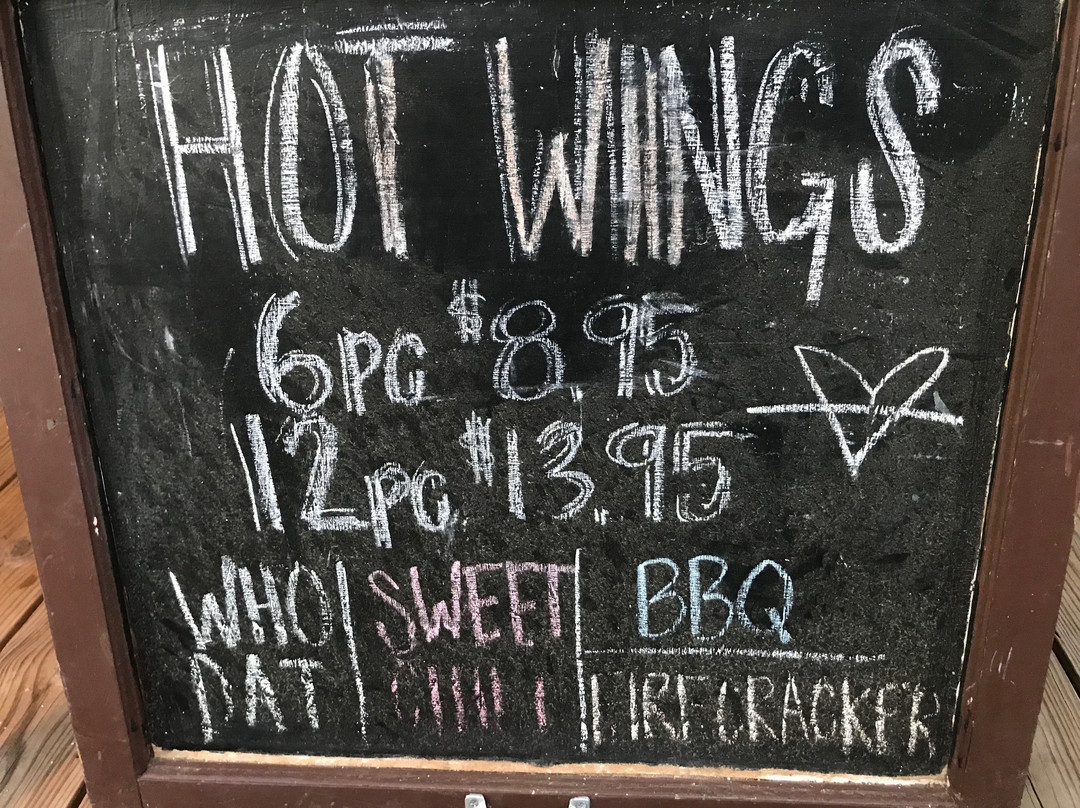 HOT WINGS
6pc $8.95
12pc $13.95
WHO DAT
SWEET CHILI
BBQ
FIRECRACKER